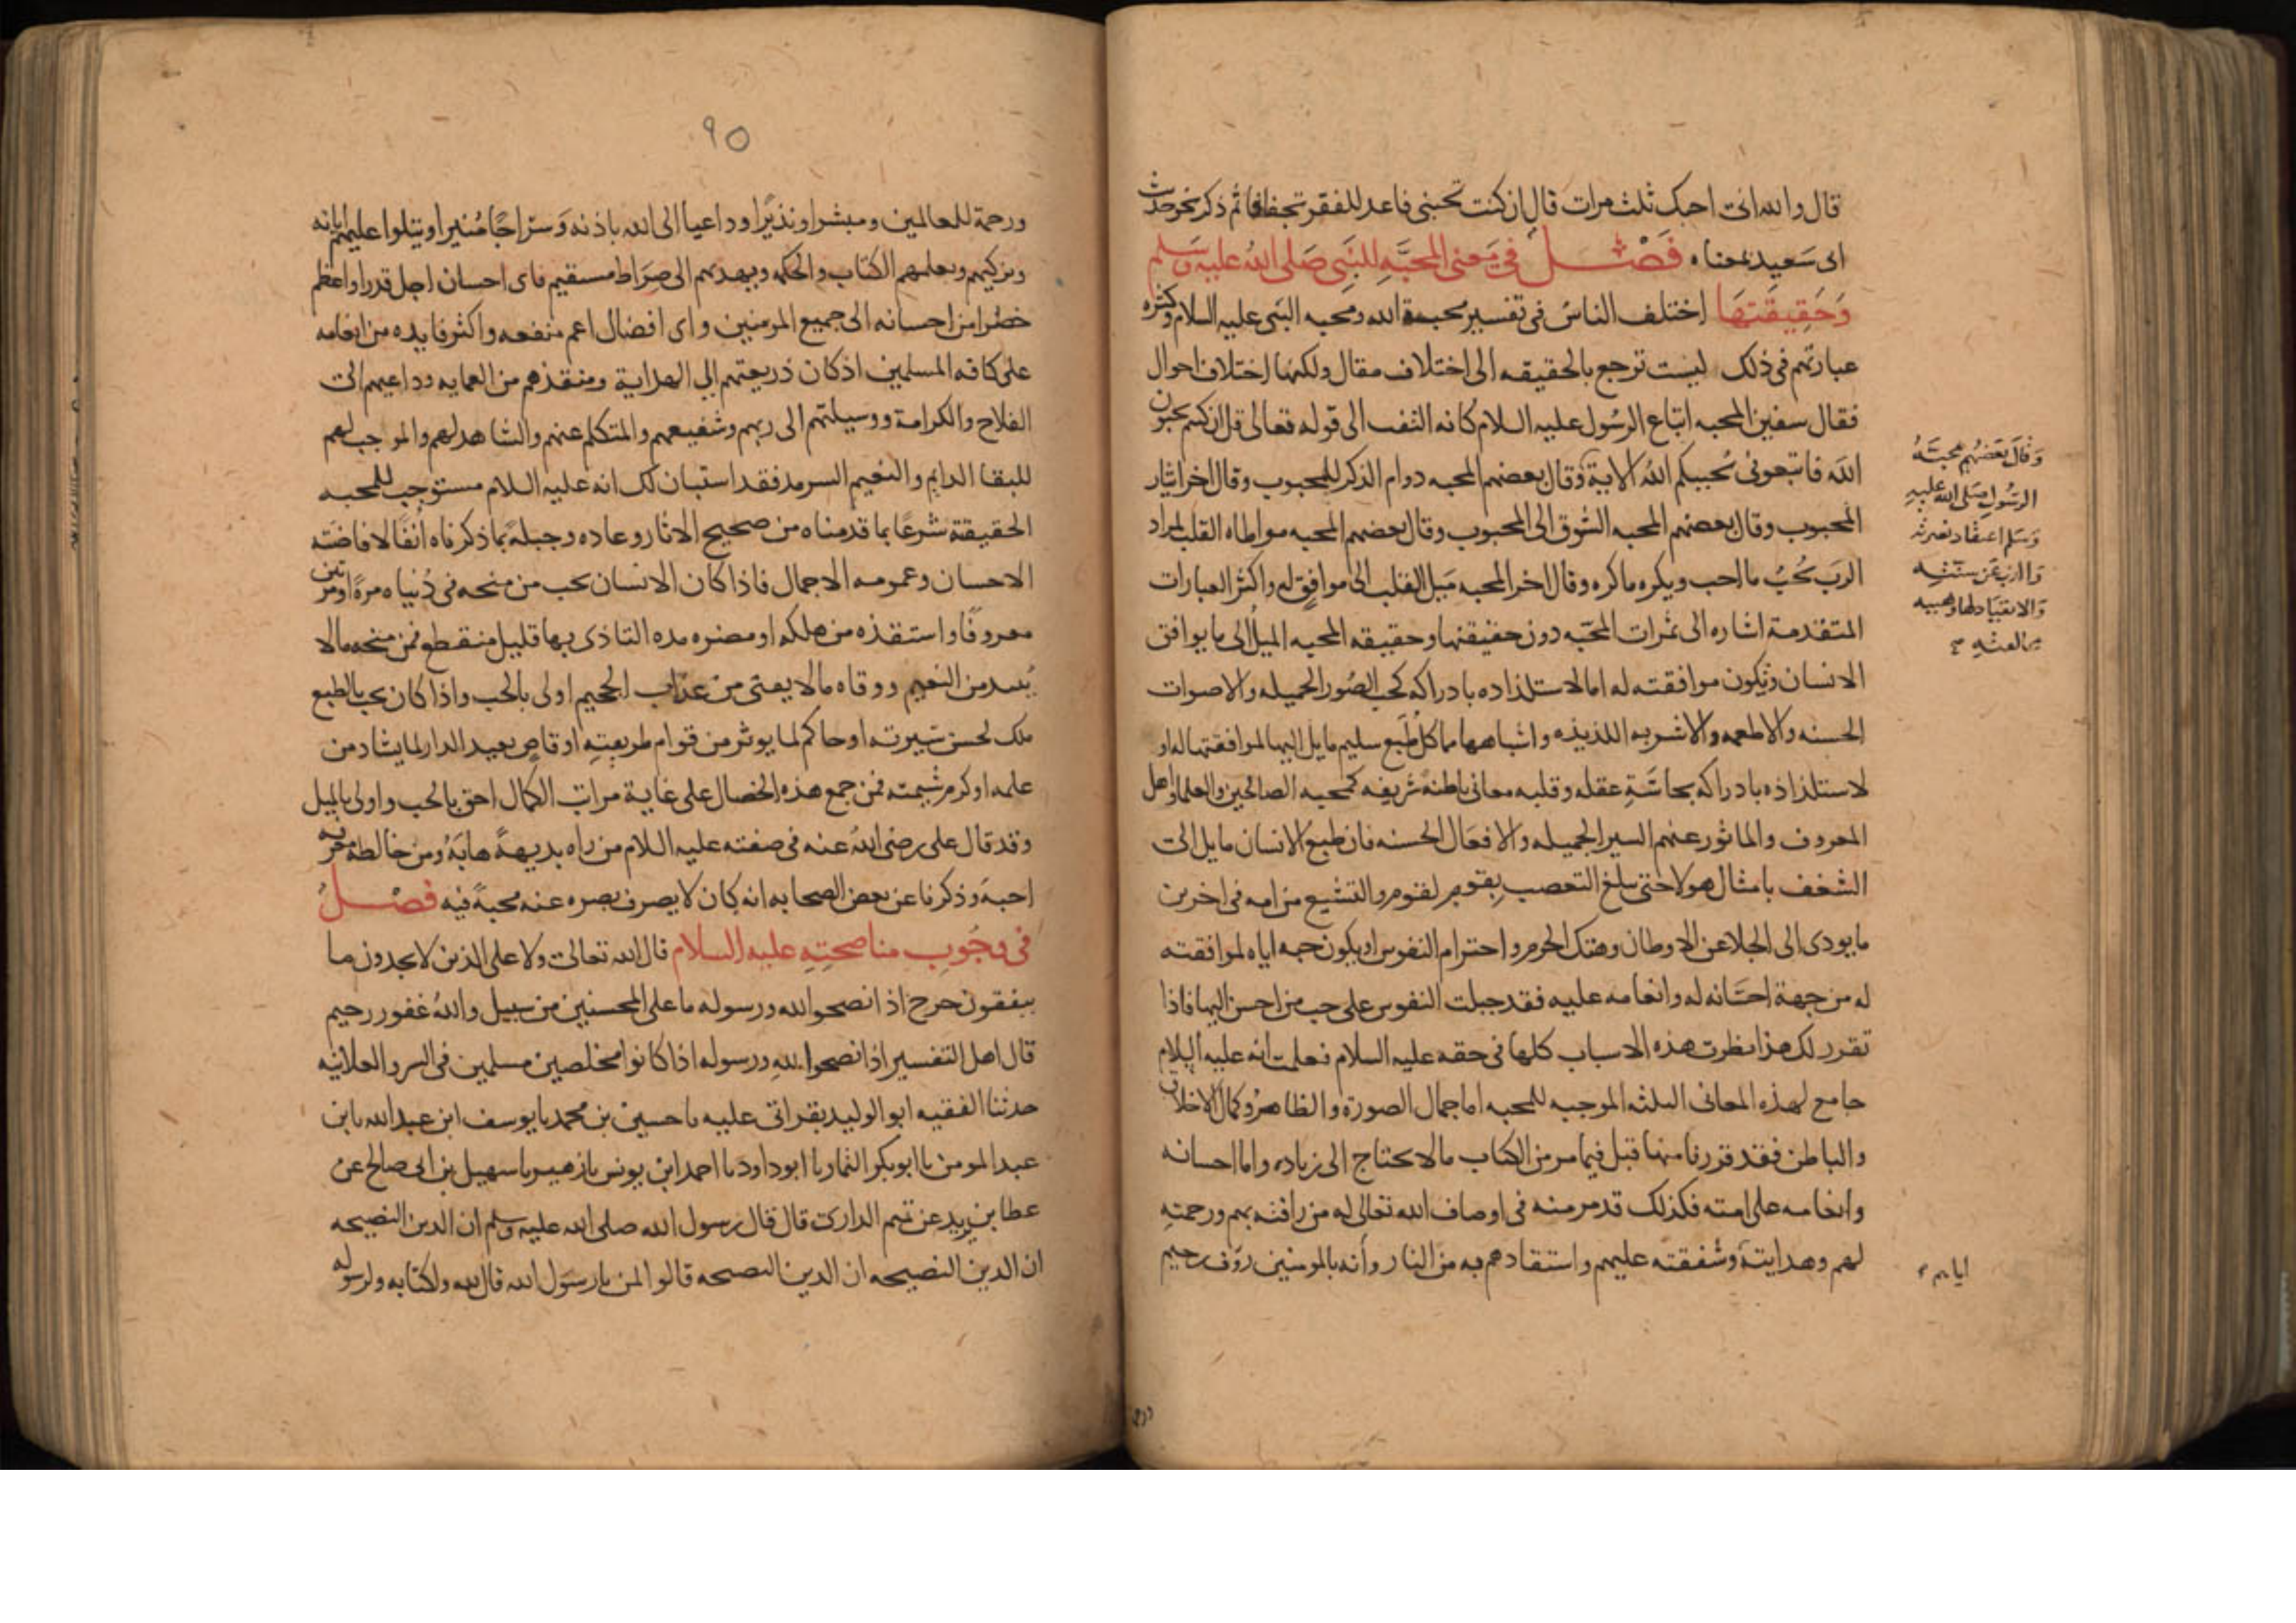 قال والله انى احبك ثلث مرات قال ان كنت تحبنى فاعد للفقر تجفافا ثم ذكر نحو حديث
ابى سَعيد بمعناه فَصْــل فى مَعنى المحبَّهِ للنَّبِى صَلى اللهُ عليه وَسَلم
وَحَقِيقَتهَا اختلف الناسُ فى تفسير محبة الله ومحبه النبى عليه السلام وكثره
عبارتهم فى ذلك ليست ترجع بالحقيقه الى اختلاف مقال ولكنها اختلاف احوال
فقال سفين المحبه اتباع الرسُول عليه السلام كانه التفت الى قوله تعالى قل ان كنتم تحبون
اللهَ فاتبعونى يُحببكم اللهُ الاية وقال بعضهم المحبه دوام الذكر للمحبوب وقال اخر ايثار
المحبوب وقال بعضهم المحبه الشوق الى المحبوب وقال بعضهم المحبه مواطاه القلب لمراد
الربَ يُحبُ ما احب ويكره ما كره وقال اخر المحبه مَيل القلب الى موافقٍ له واكثر العبارات
المتقدمة اشاره الى ثمرات المحبّه دون حقيقتها وحقيقه المحبه الميلُ الى ما يوافق
الانسان وتكون موافقته له اما لاستلذاده بادراكه كحب الصُور الجميله والاصوات
الحسنه والاطعمه والاشربه اللذيذه واشباهها مما كل طَبع سليم مايل اليها لموافقتها له او
لاستلذاذه بادراكه بحاسَّةِ عقله وقلبه معانى باطنهً شريفه كمحبه الصالحين والعلما واهل
المعروف والماثور عنهم السير الجميله والافعَال الحسنه فان طبع الانسان مايل الى
الشغف بامثال هولا حتى يبلغ التعصب بِقوم لقوم والتشيع من امه فى اخرين
ما يودى الى الجلا عن الاوطان وهتك الحرم واحترام النفوس او يكون حبه اياه لموافقته
له من جهة احسَانه له وانعامه عليه فقد جبلت النفوس على حب من احسن اليها فاذا
تقرر لك هذا نظرت هذه الاسباب كلها فى حقه عليه السلام فعلمت انه عليه السلام
جامع لهذه المعانى الثلثه الموجبه للمحبه اما جمال الصورة والظاهر وكمال الاخلاق
والباطن فقد قررنا منها قبل فيما مر من الكتاب ما لا يحتاج الى زياده واما احسانه
وانعامه على امته فكذلك قد مر منه فى اوصاف الله تعالى له من رافته بهم ورحمتهِ
لهم وهدايتهَ وشفقته عليهم واستنقادهم به من النار وأنه بالمومنين روف رحيم
وَقالَ بَعضهُم محبتَهُ
الرسُولِ صَلى الله عليهِ
وَسَلم اعتقاد نصرته
وَالذب عَن سنتهِ
وَالانقيَاد لها وهيبه
مخالفتهِ
اياهم
٩٥
ورحمة للعالمين ومبشرا ونذيرًا وداعيا الى الله باذنه وَسرَاجًا مُنيرا ويتلوا عليهم اياته
ويزكيهم ويعلمهم الكتاب والحكمه ويهديهم الى صِرَاط مستقيم فاى احسان اجل قدرا واعظم
خطرا من احسانه الى جميع المومنين واى افضال اعم منفعه واكثر فايده من انعامه
على كافه المسلمين اذ كان ذريعتهم الى الهداية ومنقذهم من العمايه وداعيهم الى
الفلاح والكرامة ووسيلتهم الى ربهم وشفيعهم والمتكلم عنهم والشاهد لهم والموجب لهم
للبقا الدايم والنعيم السرمد فقد استبان لك انه عليه السلام مستوجب للمحبه
الحقيقة شرعًا بما قدمناه من صحيح الاثار وعاده وجبلهً بما ذكرناه انفًا لافاضَته
الاحسان وعمومه الاجمال فاذا كان الانسان يحب من منحه فى دُنياه مرةً او مرتين
معروفًا واستنقذه من هلكه او مضره مده التاذى بها قليل منقطع فمن منحه ما لا
يَبيد من النعيم ووقاه ما لا يفنى من عذاب الجحيم اولى بالحب واذا كان يحب بالطبع
ملك لحسن سَيرته او حاكم لما يوثر من قوام طريقتهِ او قاصٍ بعيد الدار لما يشاد من
علمه او كرم شيمته فمن جمع هذه الخصال على غاية مراتب الكمال احق بالحب واولى بالميل
وقد قال على رضى اللهُ عنه فى صفته عليه السلام من راه بديههً هابَهُ ومن خالطه معرفه
احبهَ وذكرنا عن بعض الصحابه انه كان لا يصرف بصره عنه محبةً فيه فصْــلُ
فى وجُوبِ مناصحتِهِ عليهِ السلام قال الله تعالى ولا على الذين لا يجدون ما
ينفقون حرج اذا نصحوا لله ورسوله ما على المحسنين من سبيل واللهُ غفور رحيم
قال اهل التفسير اذا نصحوا للهِ ورسوله اذا كانوا مخلصين مسلمين فى السر والعلانيه
حدثنا الفقيه ابو الوليد بقراتى عليه نا حسين بن محمد نا يوسف ابن عبد الله نا ابن
عبد المومن نا ابو بكر التمار نا ابو داود نا احمد ابن يونس نا زهير نا سهيل بن ابى صالح عن
عطا بن يزيد عن تميم الدارى قال قال رسول الله صلى الله عليه وسلم ان الدين النصيحه
ان الدين النصيحه ان الدين النصيحه قالوا لمن يا رسَول الله قال لله ولكتابه ولرسوله